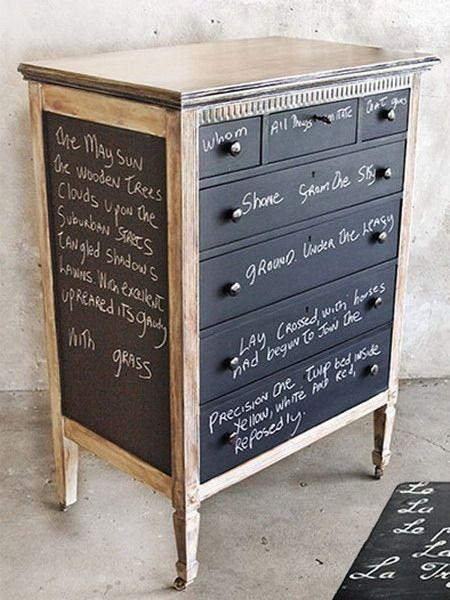 The MAY SUN
the wooden Trees
Clouds upon the
Suburban Streets
tangled Shadows
Lawns. With excellent
upreared its gaudy
With
grass
Whom
All Things imitate
That gives
Shone from the Sky
GROUND. Under the Leafy
LAY Crossed, with horses
HAD begun to Join the
Precision the Tulip bed inside
Yellow, white AND Red,
Reposedly.
Le
La
Le
La
La